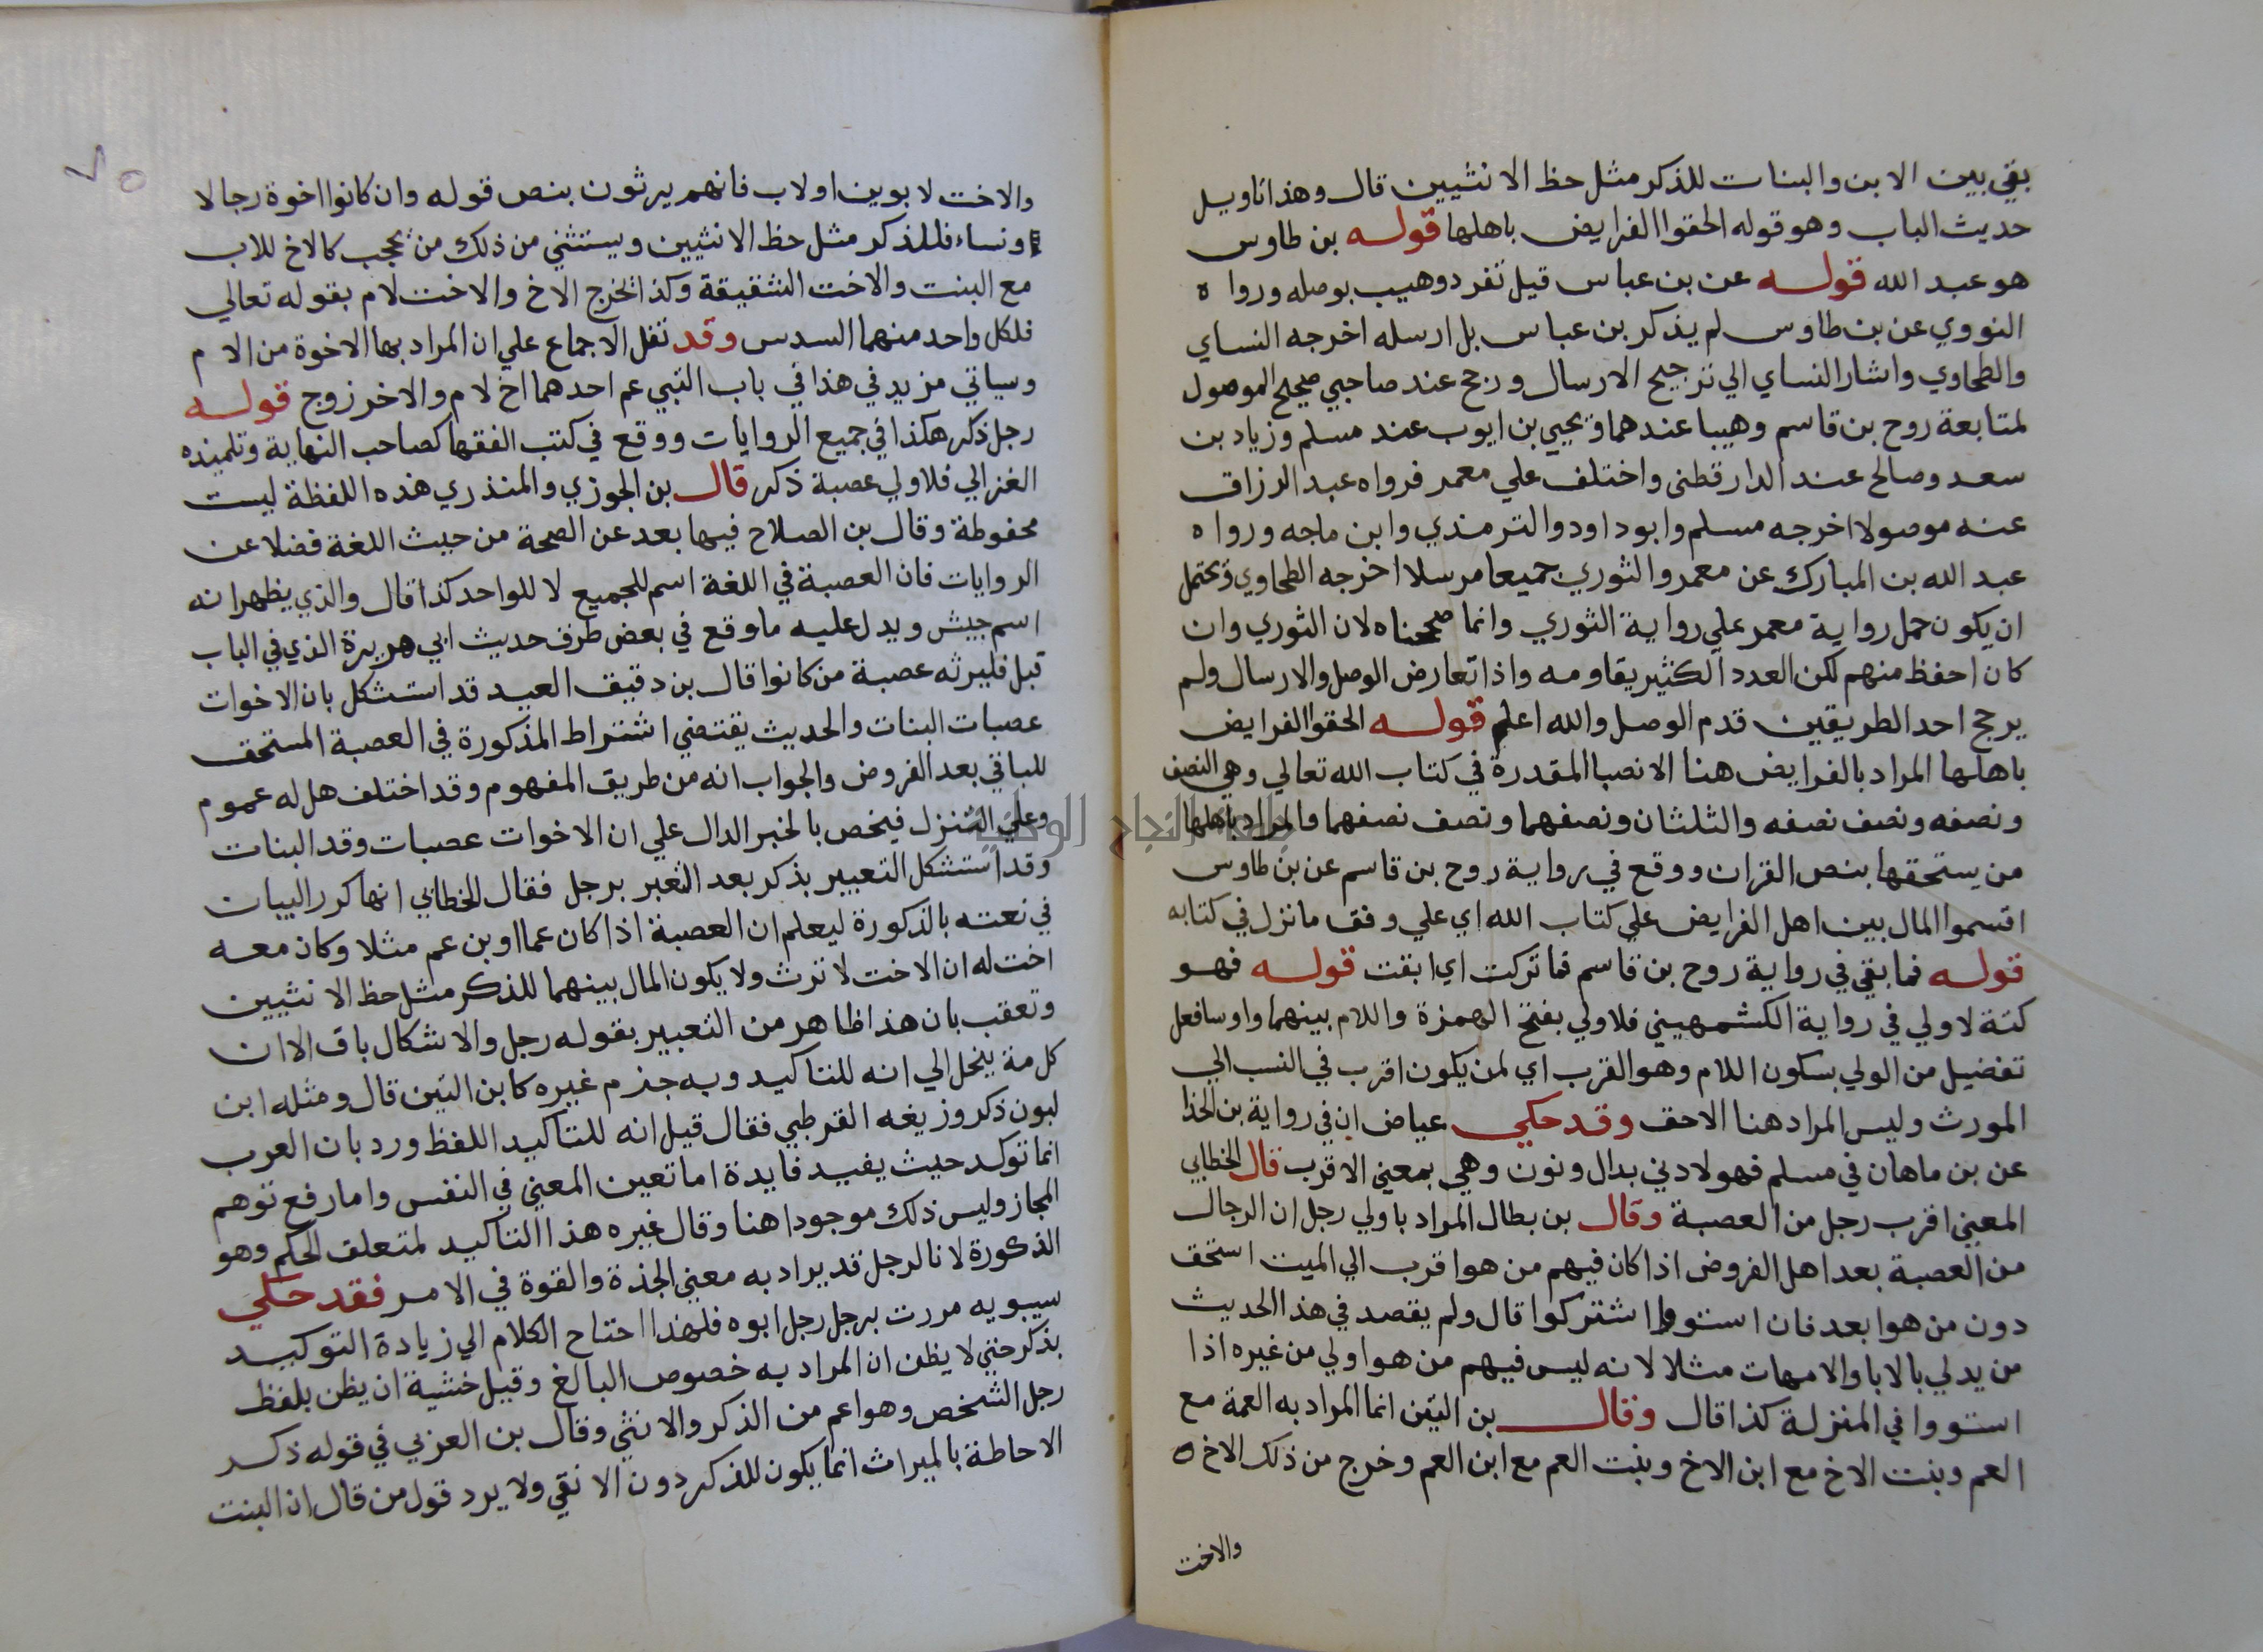 بقي بين الابن والبنات للذكر مثل حظ الانثيين قال وهذا تاويل
حديث الباب وهو قوله الحقوا الفرايض باهلها قوله بن طاوس
هو عبد الله قوله عن بن عباس قيل تفرد وهيب بوصله ورواه
النووي عن بن طاوس لم يذكر بن عباس بل ارسله اخرجه النساي
والطحاوي واشار النساي الي ترجيح الارسال ورجح عند صاحبي صحيح الموصول
لمتابعة روح بن قاسم وهيبا عندهما ويحيي بن ايوب عند مسلم وزياد بن
سعد وصالح عند الدارقطني واختلف علي معمر فرواه عبد الرزاق
عنه موصولا اخرجه مسلم وابو داود والترمذي وابن ماجه ورواه
عبد الله بن المبارك عن معمر والثوري جميعا مرسلا اخرجه الطحاوي ويحتمل
ان يكون حمل رواية معمر علي رواية الثوري وانما صححناه لان الثوري وان
كان احفظ منهم لكن العدد الكثير يقاومه واذا تعارض الوصل والارسال ولم
يرجح احد الطريقين قدم الوصل والله اعلم قوله الحقوا الفرايض
باهلها المراد بالفرايض هنا الانصبا المقدرة في كتاب الله تعالي وهي النصف
ونصفه ونصف نصفه والثلثان ونصفهما ونصف نصفهما والمراد باهلها
من يستحقها بنص القران ووقع في رواية روح بن قاسم عن بن طاوس
اقسموا المال بين اهل الفرايض علي كتاب الله اي علي وفق ما نزل في كتابه
قوله فما بقي في رواية روح بن قاسم فما تركت اي ابقت قوله فهو
كتة لاولي في رواية الكشمهيني فلاولي بفتح الهمزة واللام بينهما واو سا فعل
تفضيل من الولي بسكون اللام وهو القرب اي لمن يكون اقرب في النسب الي
المورث وليس المراد هنا الاحق وقد حكي عياض ان في رواية بن الحذا
عن بن ماهان في مسلم فهو لادني بدال ونون وهي بمعني الاقرب قال الخطابي
المعني اقرب رجل من العصبة وقال بن بطال المراد باولي رجل ان الرجال
من العصبة بعد اهل الفروض اذا كان فيهم من هو اقرب الي الميت استحق
دون من هو ابعد فان استووا اشتركوا قال ولم يقصد في هذا الحديث
من يدلي بالابا والامهات مثلا لانه ليس فيهم من هو اولي من غيره اذا
استووا في المنزلة كذا قال وقال بن التين انما المراد به العمة مع
العم وبنت الاخ مع ابن الاخ وبنت العم مع ابن العم وخرج من ذلك الاخ
والاخت
والاخت لابوين او لاب فانهم يرثون بنص قوله وان كانوا اخوة رجالا
ونساء فللذكر مثل حظ الانثيين ويستثني من ذلك من يحجب كالاخ للاب
مع البنت والاخت الشقيقة وكذا يخرج الاخ والاخت لام بقوله تعالي
فلكل واحد منهما السدس وقد نقل الاجماع علي ان المراد بها الاخوة من الام
وسياتي مزيد في هذا في باب البني عم احدهما اخ لام والاخر زوج قوله
رجل ذكر هكذا في جميع الروايات ووقع في كتب الفقها كصاحب النهاية وتلميذه
الغزالي فلاولي عصبة ذكر قال بن الجوزي والمنذري هذه اللفظة ليست
محفوظة وقال بن الصلاح فيها بعد عن الصحة من حيث اللغة فضلا عن
الروايات فان العصبة في اللغة اسم للجميع لا للواحد كذا قال والذي يظهر انه
اسم جيش ويدل عليه ما وقع في بعض طرق حديث ابي هريرة الذي في الباب
قبل فليرثه عصبة من كانوا قال بن دقيق العيد قد استشكل بان الاخوات
عصبات البنات والحديث يقتضي اشتراط المذكورة في العصبة المستحق
للباقي بعد الفروض والجواب انه من طريق المفهوم وقد اختلف هل له عموم
وعلي التنزل فيخص بالخبر الدال علي ان الاخوات عصبات وقد البنات
وقد استشكل التعبير بذكر بعد التعبر برجل فقال الخطابي انها كرر البيات
في نعته بالذكورة ليعلم ان العصبة اذا كان عما او بن عم مثلا وكان معه
اخت له ان الاخت لا ترث ولا يكون المال بينهما للذكر مثل حظ الانثيين
وتعقب بان هذا ظاهر من التعبير بقوله رجل والاشكال باق الا ان
كلامه ينحل الي انه للتاكيد وبه جزم غيره كابن التين قال ومثله ابن
لبون ذكر وزيغه القرطبي فقال قيل انه للتاكيد اللفظ ورد بان العرب
انما توكد حيث يفيد فايدة اما تعين المعني في النفس واما رفع توهم
المجاز وليس ذلك موجودا هنا وقال غيره هذا التاكيد لمتعلق الحكم وهو
الذكورة لانا الرجل قد يراد به معني الجذة والقوة في الامر فقد حكي
سيبويه مررت برجل رجل ابوه فلهذا احتاح الكلام الي زيادة التوكيد
بذكر حتي لا يظن ان المراد به خصوص البالغ وقيل خشية ان يظن بلفظ
رجل الشخص وهو اعم من الذكر والانثي وقال بن العربي في قوله ذكر
الاحاطة بالميراث انما يكون للذكر دون الانقي ولا يرد قول من قال ان البنت
جامعة النجاح الوطنية